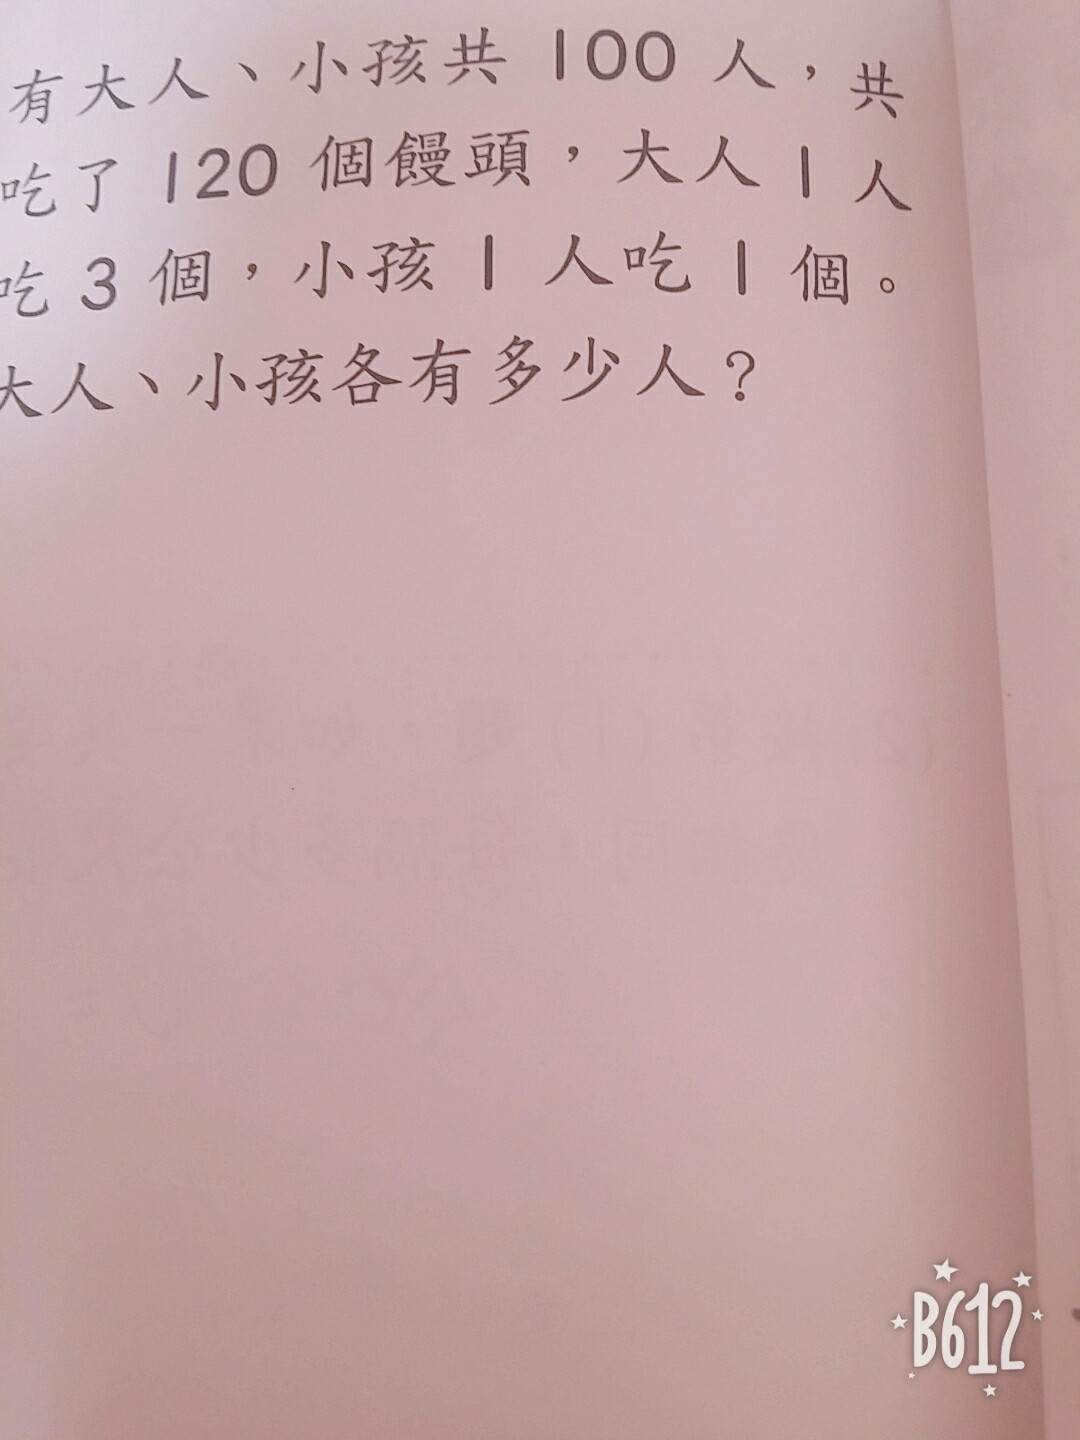 有大人、小孩共 100 人，共
吃了 120 個饅頭，大人 1 人
吃 3 個，小孩 1 人吃 1 個。
大人、小孩各有多少人？
B612